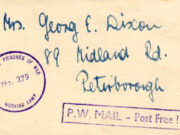 Mrs. Georg E. Dixon
89 Midland Rd.
Peterborough
PRISONER OF WAR
No. 279
WORKING CAMP
P.W. MAIL - Post Free